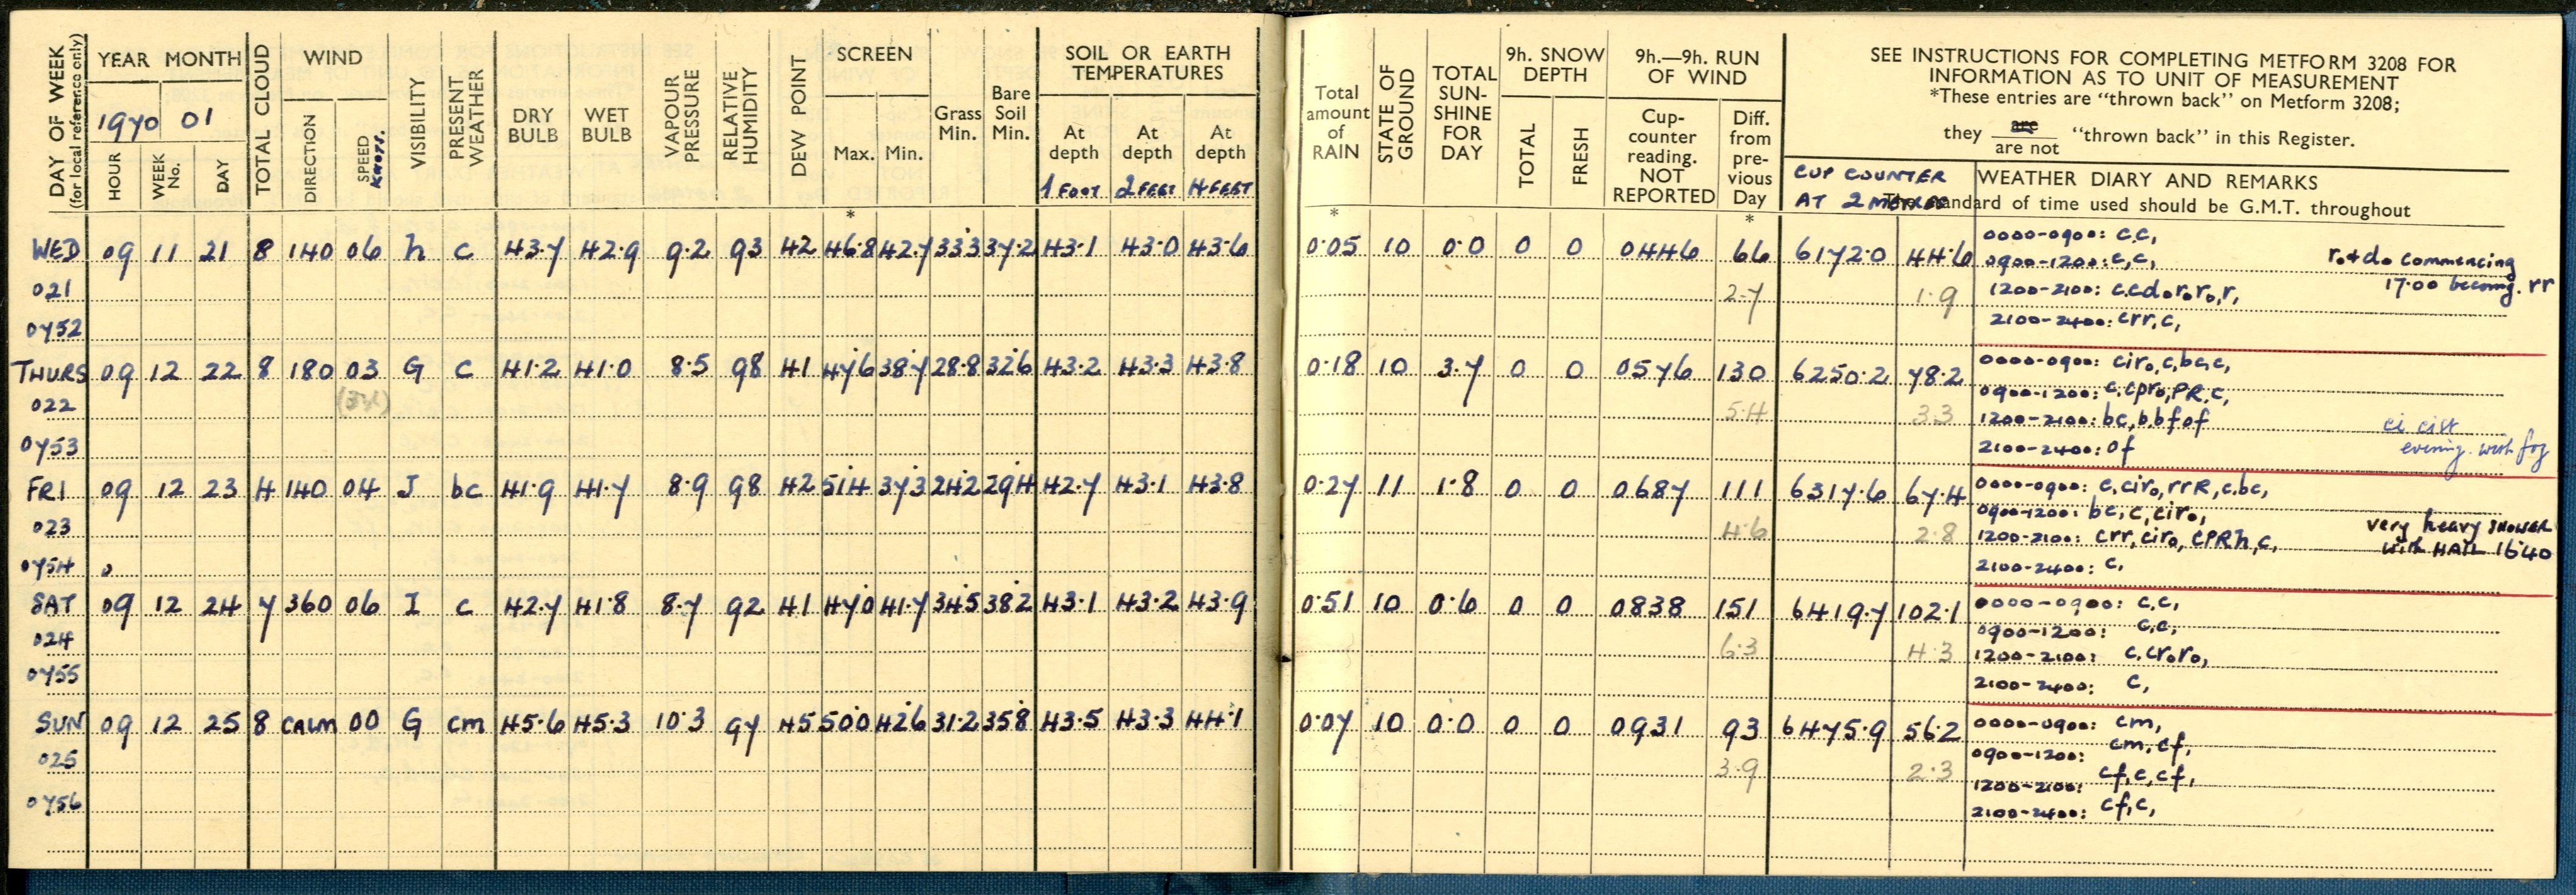 DAY OF WEEK
(for local reference only)
YEAR MONTH
1970 01
HOUR
WEEK No.
DAY
TOTAL CLOUD
WIND
DIRECTION
SPEED
KNOTS.
VISIBILITY
PRESENT WEATHER
DRY BULB
WET BULB
VAPOUR PRESSURE
RELATIVE HUMIDITY
DEW POINT
SCREEN
Max. Min.
Grass Min.
Bare Soil Min.
SOIL OR EARTH TEMPERATURES
At depth At depth At depth
1 FOOT 2 FEET 4 FEET
Total amount of RAIN
STATE OF GROUND
TOTAL SUN-SHINE FOR DAY
9h. SNOW DEPTH
TOTAL
FRESH
9h.—9h. RUN OF WIND
Cup-counter reading. NOT REPORTED
Diff. from pre-vious Day
SEE INSTRUCTIONS FOR COMPLETING METFORM 3208 FOR
INFORMATION AS TO UNIT OF MEASUREMENT
*These entries are "thrown back" on Metform 3208;
they are / are not "thrown back" in this Register.
CUP COUNTER
AT 2 METRES
WEATHER DIARY AND REMARKS
The standard of time used should be G.M.T. throughout
* * *
WED 09 11 21 8 140 06 h c 43.7 42.9 9.2 93 42 46.8 42.7 33.3 37.2 43.1 43.0 43.6 0.05 10 0.0 0 0 0446 66 6172.0 44.6
021 2.7 1.9
0752
0000-0900: c.c,
0900-1200: c,c,
1200-2100: c.cdₒrₒrₒ,r,
2100-2400: crr,c,
rₒ+dₒ commencing
17.00 becoming. rr
THURS 09 12 22 8 180 03 G c 41.2 41.0 8.5 98 41 47.6 38.7 28.8 32.6 43.2 43.3 43.8 0.18 10 3.7 0 0 0576 130 6250.2 78.2
022 5.4 3.3
0753
0000-0900: cirₒ,c,bc,c,
0900-1200: c,cprₒ,PR,c,
1200-2100: bc,b.bfof
2100-2400: of
ci cist
evening. with fog
FRI 09 12 23 4 140 04 J bc 41.9 41.7 8.9 98 42 51.4 37.3 24.2 29.4 42.7 43.1 43.8 0.27 11 1.8 0 0 0687 111 6317.6 67.4
023 4.6 2.8
0754
0000-0900: c,cirₒ,rrR,c.bc,
0900-1200: bc,c,cirₒ,
1200-2100: crr,cirₒ,cPRh,c,
2100-2400: c,
very heavy SHOWER
with HAIL 1640
SAT 09 12 24 7 360 06 I c 42.7 41.8 8.7 92 41 47.0 41.7 34.5 38.2 43.1 43.2 43.9 0.51 10 0.6 0 0 0838 151 6419.7 102.1
024 6.3 4.3
0755
0000-0900: c,c,
0900-1200: c,c,
1200-2100: c,crₒrₒ,
2100-2400: c,
SUN 09 12 25 8 CALM 00 G cm 45.6 45.3 10.3 97 45 50.0 42.6 31.2 35.8 43.5 43.3 44.1 0.07 10 0.0 0 0 0931 93 6475.9 56.2
025 3.9 2.3
0756
0000-0900: cm,
0900-1200: cm,cf,
1200-2100: cf,c,cf,
2100-2400: cf,c,